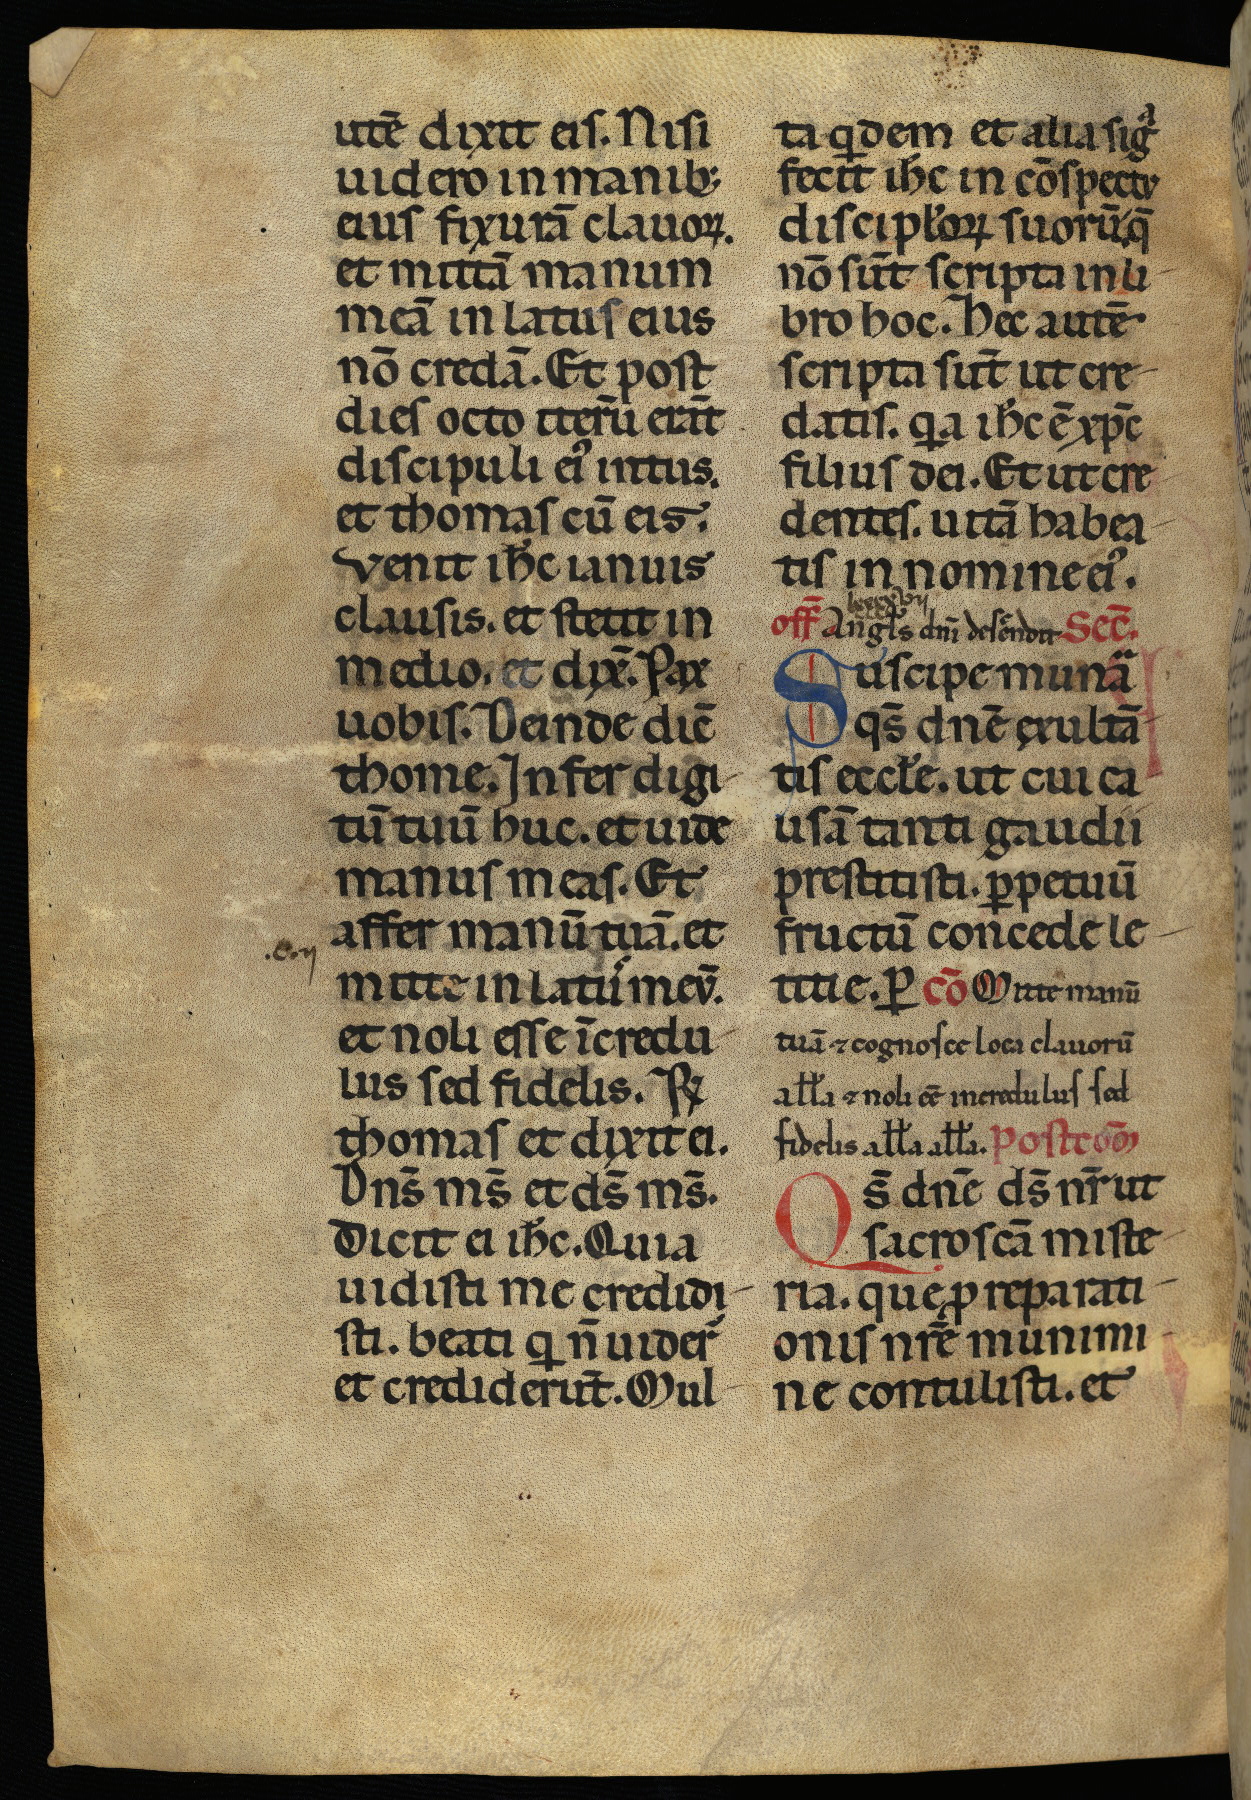 utē dixit eis. Nisi
uidero in manib;
eius fixurā clauoꝝ.
et mittā manum
meā in latus eius
nō credā. Et post
dies octo iterū erāt
discipuli ei᷒ intus.
et thomas cū eis.
Venit ih̄c ianuis
clausis. et stetit in
medio. et dix̄. Pax
uobis. Deinde dic̄
thome. Infer digi-
tū tuū huc. et uide
manus meas. Et
affer manū tuā. et
mitte in latus meū.
et noli esse īcredu-
lus sed fidelis. R̄
thomas et dixit ei.
Dn̄s ms̄ et ds̄ ms̄.
Dicit ei ih̄c. Quia
uidisti me credidi-
sti. beati q̇ n̄ uider̄
et crediderūt. Mul-
ta qͥdem et alia sigͣ
fecit ih̄c in cōspectu
discipl̄oꝝ suorū. q̄
nō sūt scripta in li-
bro hoc. Hec autē
scripta sūt ut cre-
datis. qͥa ih̄c ē xp̄c
filius dei. Et ut cre-
dentes. uitā habea-
tis in nomine ei᷒.
off̄ Angl̄s dn̄i descendit Sec̄.
Suscipe munͣa
qs̄ dn̄e exultā-
tis eccl̄e. ut cui ca
usā tanti gaudii
prestitisti. ꝑpetuū
fructū concede le-
titie. ꝑ cō Mitte manū
tuā ⁊ cognosce loca clauorū
all̄a ⁊ noli eē incredulus sed
fidelis all̄a all̄a. Postcōm̄
Qs̄ dn̄e ds̄ nr̄ ut
sacroscā miste-
ria. que ꝓ reparati-
onis nrē munimi-
ne contulisti. et